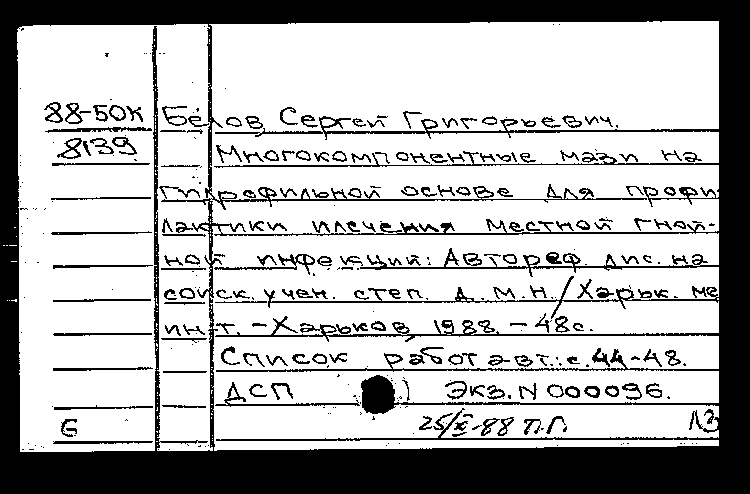 88-50К Белов, Сергей Григорьевич.
8139 Многокомпонентные мази на
гидрофильной основе для профи-
лактики и лечения местной гной-
ной инфекции: Автореф. дис. на
соиск. учен. степ. д.м.н./Харьк. ме
ин-т. - Харьков, 1988. - 48с.
Список работ авт.: с. 44-48.
ДСП Экз. N 000096.
G 25/XI-88 П.Г.